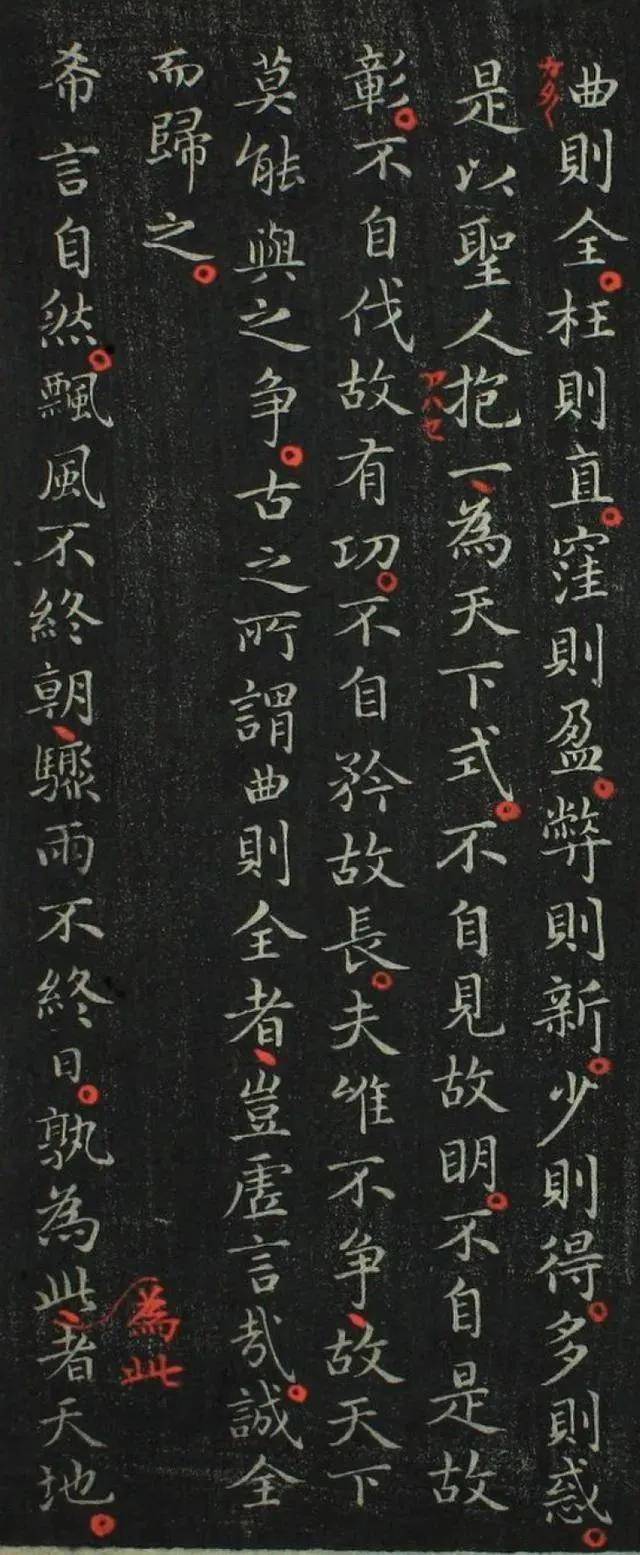 曲則全。枉則直。窪則盈。弊則新。少則得。多則惑。
是以聖人抱一、為天下式。不自見故明。不自是故
彰。不自伐故有功。不自矜故長。夫唯不争、故天下
莫能與之争。古之所謂曲則全者、豈虚言哉。誠全
而歸之。
希言自然。飄風不終朝、驟雨不終日。孰為此、者天地。
為此